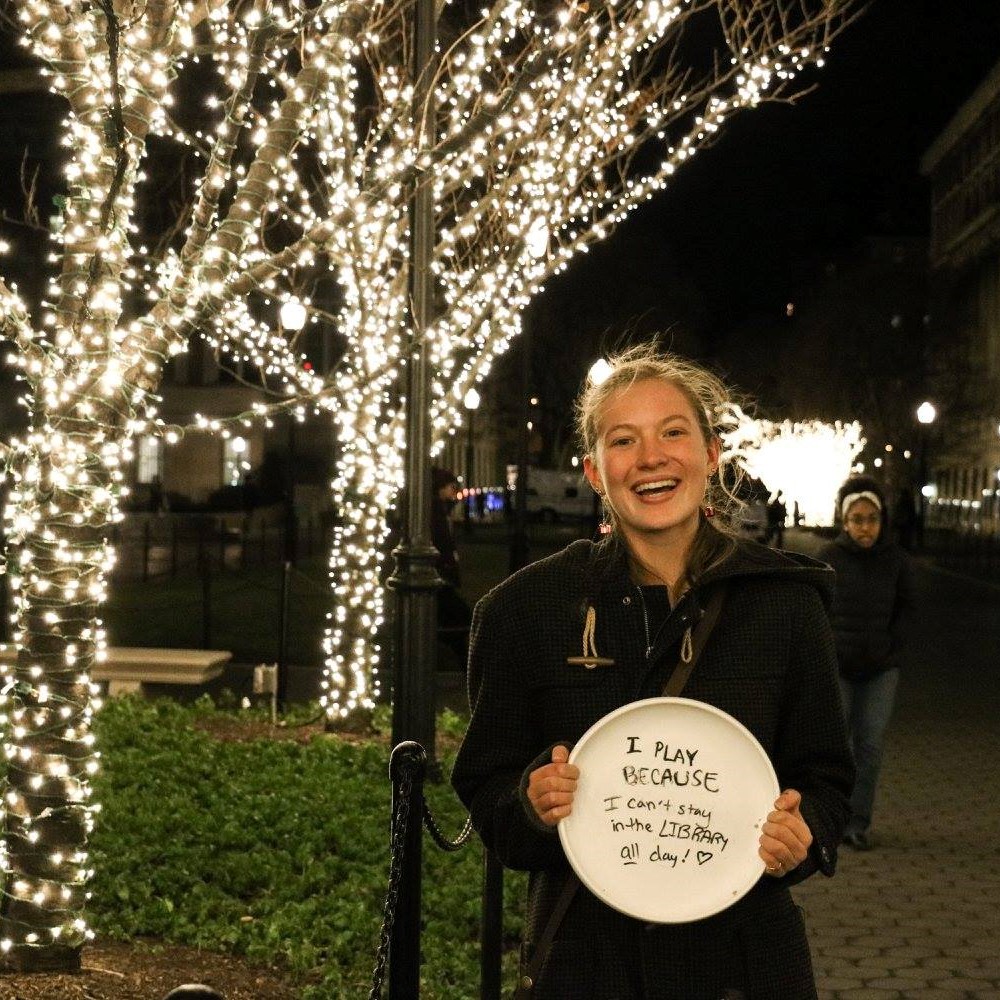 I PLAY
BECAUSE
I can't stay
in the LIBRARY
all day! ♡